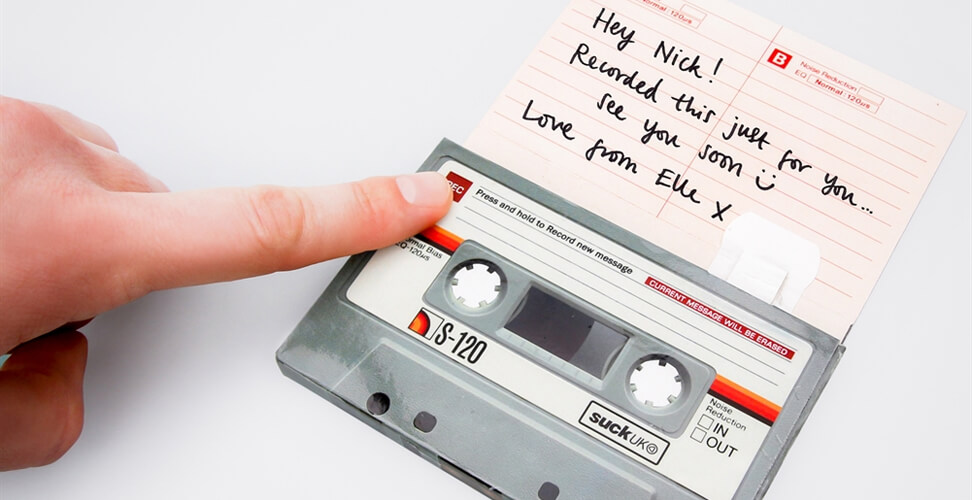 Normal 120µs
Hey Nick!
Recorded this just for you...
See you soon
Love from Elle X
B
Noise Reduction
EQ Normal 120µs
REC
Press and hold to Record new message
CURRENT MESSAGE WILL BE ERASED
Normal Bias
EQ-120µs
S-120
Noise
Reduction
IN
OUT
suck UK